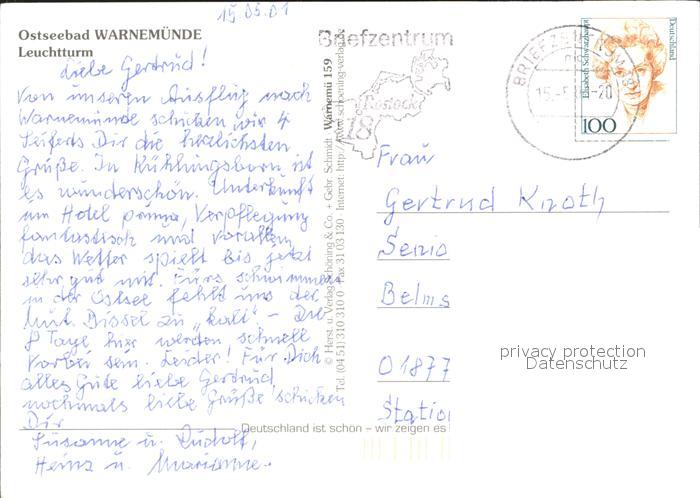 15.05.01
Ostseebad WARNEMÜNDE
Leuchtturm
Liebe Gertrud!
Von unseren Ausflug nach
Warnemünde schicken wir 4
Seiferts Dir die herzlichsten
Grüße. In Kühlungsborn ist
es wunderschön. Unterkunft
im Hotel prima, Verpflegung
fantastisch und vorallem
das Wetter spielt bis jetzt
sehr gut mit. Fürs schwimmen
in der Ostsee fehlt uns der
Mut. Bissel zu „kalt" - Die
8 Tage hier werden schnell
vorbei sein. Leider! Für Dich
alles Gute liebe Gertrud
nochmals liebe Grüße schicken
Dir
Susanne u. Rudolf,
Heinz u. Marianne.
© Herst. u. Verlag Schöning & Co. + Gebr. Schmidt · Warnemü 159
Tel. (04 51) 310 310 0 · Fax 31 03 130 · Internet: http://www.schoening-verlag.de
Briefzentrum
18
Rostock
BRIEFZENTRUM 18
Elisabeth Schwarzhaupt
Deutschland
100
Frau
Gertrud Knoth
Senio
Belms
01877
Statio
privacy protection
Datenschutz
Deutschland ist schön – wir zeigen es